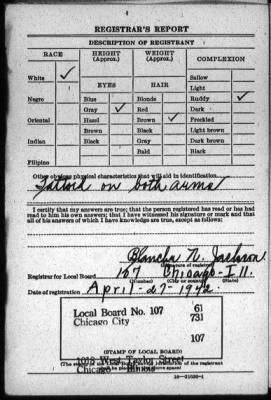 REGISTRAR'S REPORT
DESCRIPTION OF REGISTRANT
RACE HEIGHT (Approx.) WEIGHT (Approx.) COMPLEXION
White ✓ Sallow
EYES HAIR Light
Negro Blue Blonde Ruddy ✓
Gray ✓ Red Dark
Oriental Hazel Brown ✓ Freckled
Brown Black Light brown
Indian Black Gray Dark brown
Bald Black
Filipino
Other obvious physical characteristics that will aid in identification
Tattoed on both arms
I certify that my answers are true; that the person registered has read or has had
read to him his own answers; that I have witnessed his signature or mark and that
all of his answers of which I have knowledge are true, except as follows:
Blanche N. Jackson
(Signature of registrar)
Registrar for Local Board 107 Chicago - Ill.
(Number) (City or county) (State)
Date of registration April - 27 - 1942
Local Board No. 107 61
Chicago City 731
107
1018 West Taylor Street
Chicago Illinois
(STAMP OF LOCAL BOARD)
(The stamp of the Local Board of the registrant
shall be placed in the above space)
16—21630-1